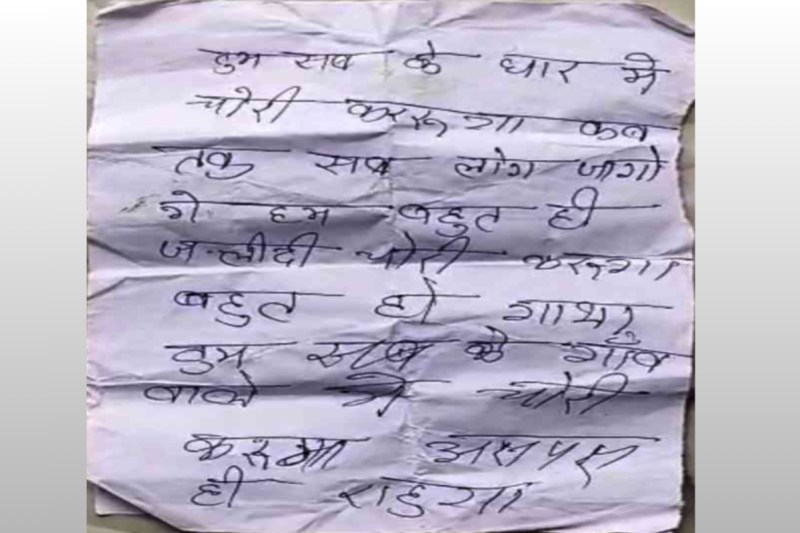 तुम सब के घार में
चोरी कररूगा कब
तक सब लोग जागो
गे हम बहुत ही
जल्दीदी चोरी करूगा
बहुत हो गाया
तुम सब के गाँव
वाले में चोरी
करूगा आसपास
ही राहुगा